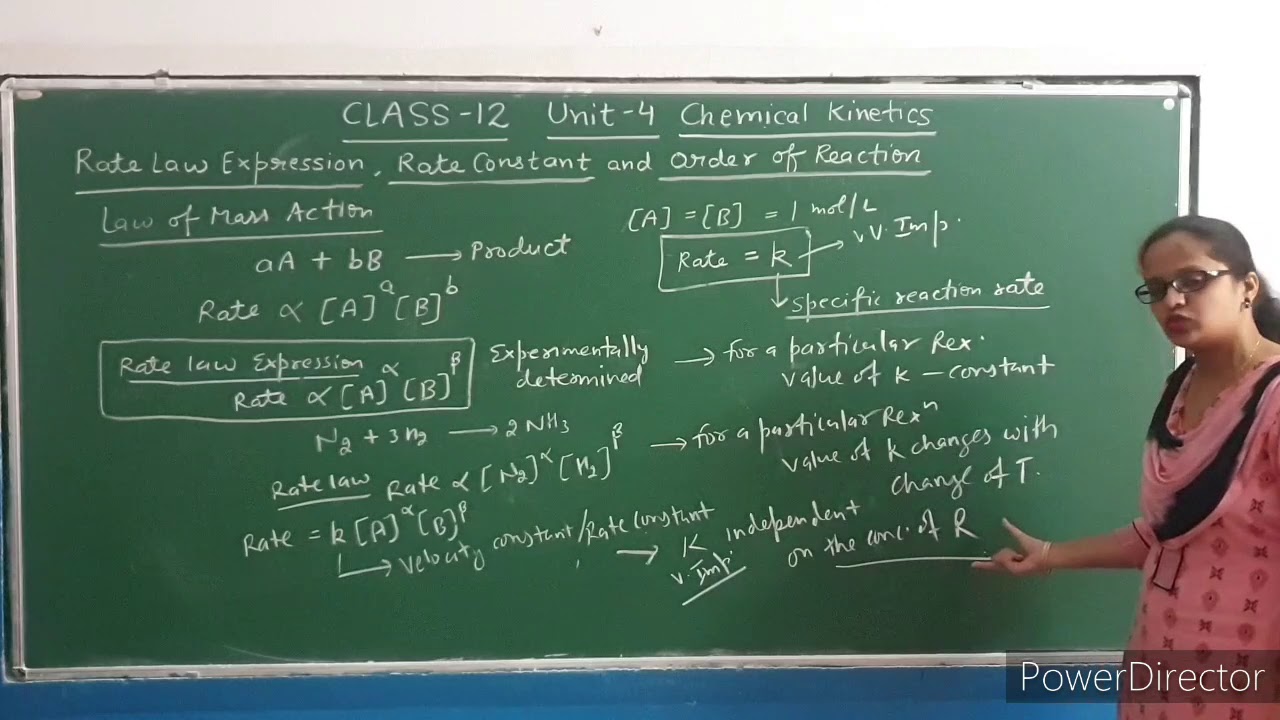 CLASS-12 Unit-4 Chemical Kinetics
Rate Law Expression, Rate Constant and order of Reaction
Law of Mass Action
aA + bB ⟶ Product
Rate ∝ [A]^a [B]^b
Rate law Expression
Rate ∝ [A]^α [B]^β
Experimentally
determined
N₂ + 3H₂ ⟶ 2NH₃
Rate law Rate ∝ [N₂]^α [H₂]^β
Rate = k [A]^α [B]^β
↳ Velocity constant/Rate constant
[A] = [B] = 1 mol/L
Rate = k → vV. Imp.
↓ specific reaction rate
→ for a particular Rex.
value of k – constant
→ for a particular Rexⁿ
value of k changes with
change of T.
→ K independent
V. Imp.
on the conc. of R
PowerDirector